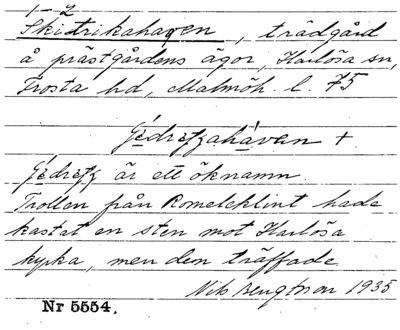 1-2
Skitrikahagen, trädgård
å prästgårdens ägor, Harlösa sn,
Frosta hd, Malmöh. l. 75
är ett öknamn.
Trollen från Romeleklint hade
kastat en sten mot Harlösa
kyrka, men den träffade
Nils Bengtsson 1935
Nr 5554.